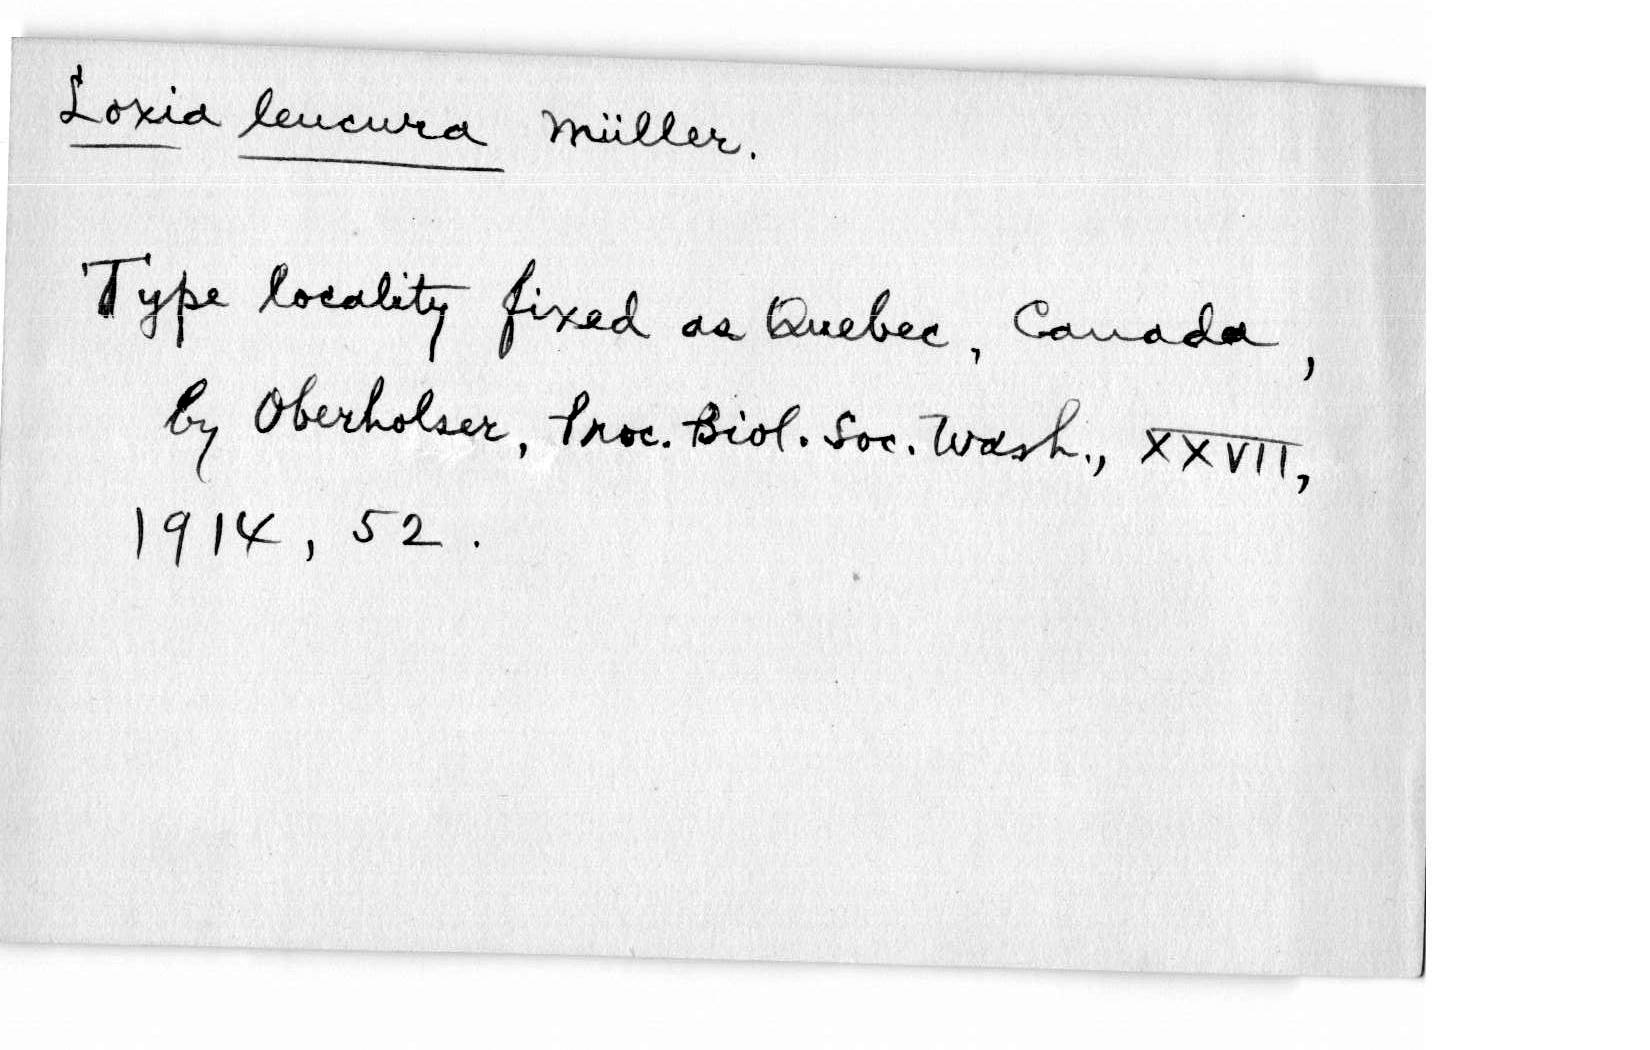 Loxia leucura Müller.
Type locality fixed as Quebec, Canada,
by Oberholser, Proc. Biol. Soc. Wash., XXVII,
1914, 52.